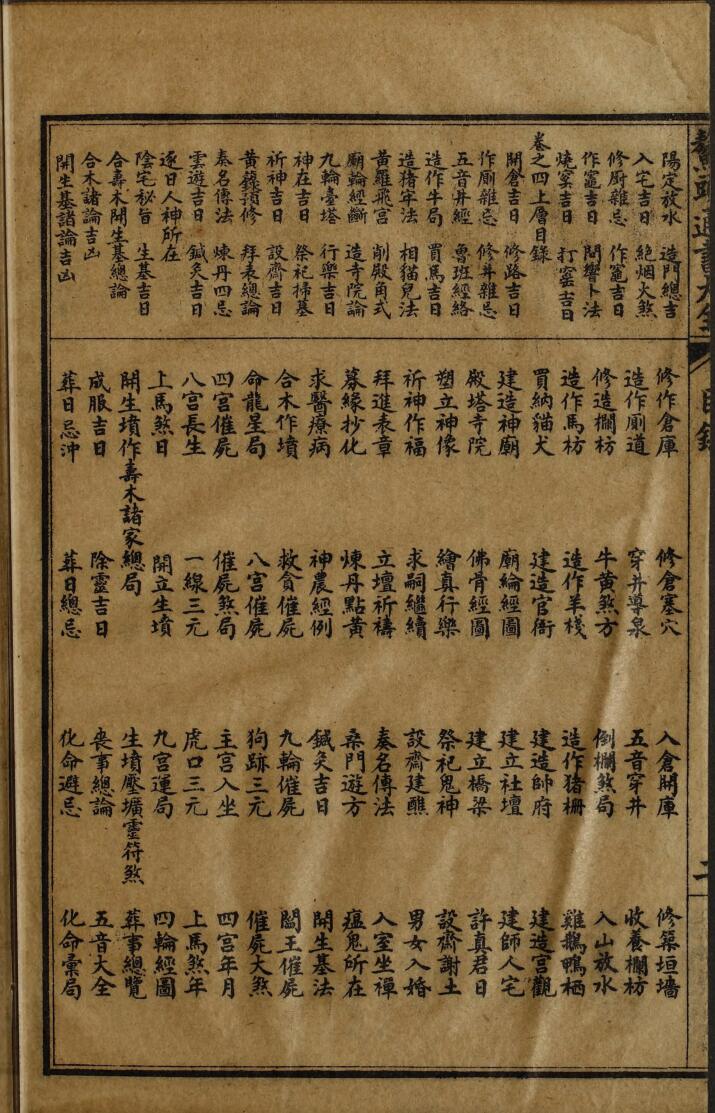 鰲頭通書大全 目錄 二
陽定放水 造門總吉
入宅吉日 絶烟火煞
修厨雜忌 作竈吉日
作竈吉日 聞響卜法
燒窯吉日 打窯吉日
卷之四上層目錄
開倉吉日 修路吉日
作厠雜忌 修井雜忌
五音井經 魯班經絡
造作牛局 買馬吉日
造猪牢法 相貓兒法
黄羅飛宮 削殿角式
廟輪經斷 造寺院論
九輪臺塔 行樂吉日
神在吉日 祭祀掃墓
祈神吉日 設齋吉日
黄籙預修 拜表總論
奏名傳法 煉丹四忌
雲遊吉日 鍼灸吉日
逐日人神所在
陰宅秘旨 生基吉日
合壽木開生基總論
合木諸論吉凶
開生基諸論吉凶
修作倉庫 修倉塞穴 入倉開庫 修築垣墻
造作厠道 穿井導泉 五音穿井 收養欄枋
修造欄枋 牛黄煞方 倒欄煞局 入山放水
造作馬枋 造作羊棧 造作猪栅 雞鵝鴨栖
買納貓犬 建造官衙 建造帥府 建造宮觀
建造神廟 廟綸經圖 建立社壇 建師人宅
殿塔寺院 佛骨經圖 建立橋梁 許真君日
塑立神像 繪真行樂 祭祀鬼神 設齋謝土
祈神作福 求嗣繼續 設齋建醮 男女入婚
拜進表章 立壇祈禱 奏名傳法 入室坐禪
募緣抄化 煉丹點黄 桑門遊方 瘟鬼所在
求醫療病 神農經例 鍼灸吉日 開生基法
合木作墳 救貧催屍 九輪催屍 閻王催屍
命龍星局 八宮催屍 狗跡三元 催屍大煞
四宮催屍 催屍煞局 主宮入坐 四宮年月
八宮長生 一線三元 虎口三元 上馬煞年
上馬煞日 開立生墳 九宮運局 四輪經圖
開生墳作壽木諸家總局 生墳壓壙靈符煞 葬事總覽
成服吉日 除靈吉日 喪事總論 五音大全
葬日忌沖 葬日總忌 化命避忌 化命彙局